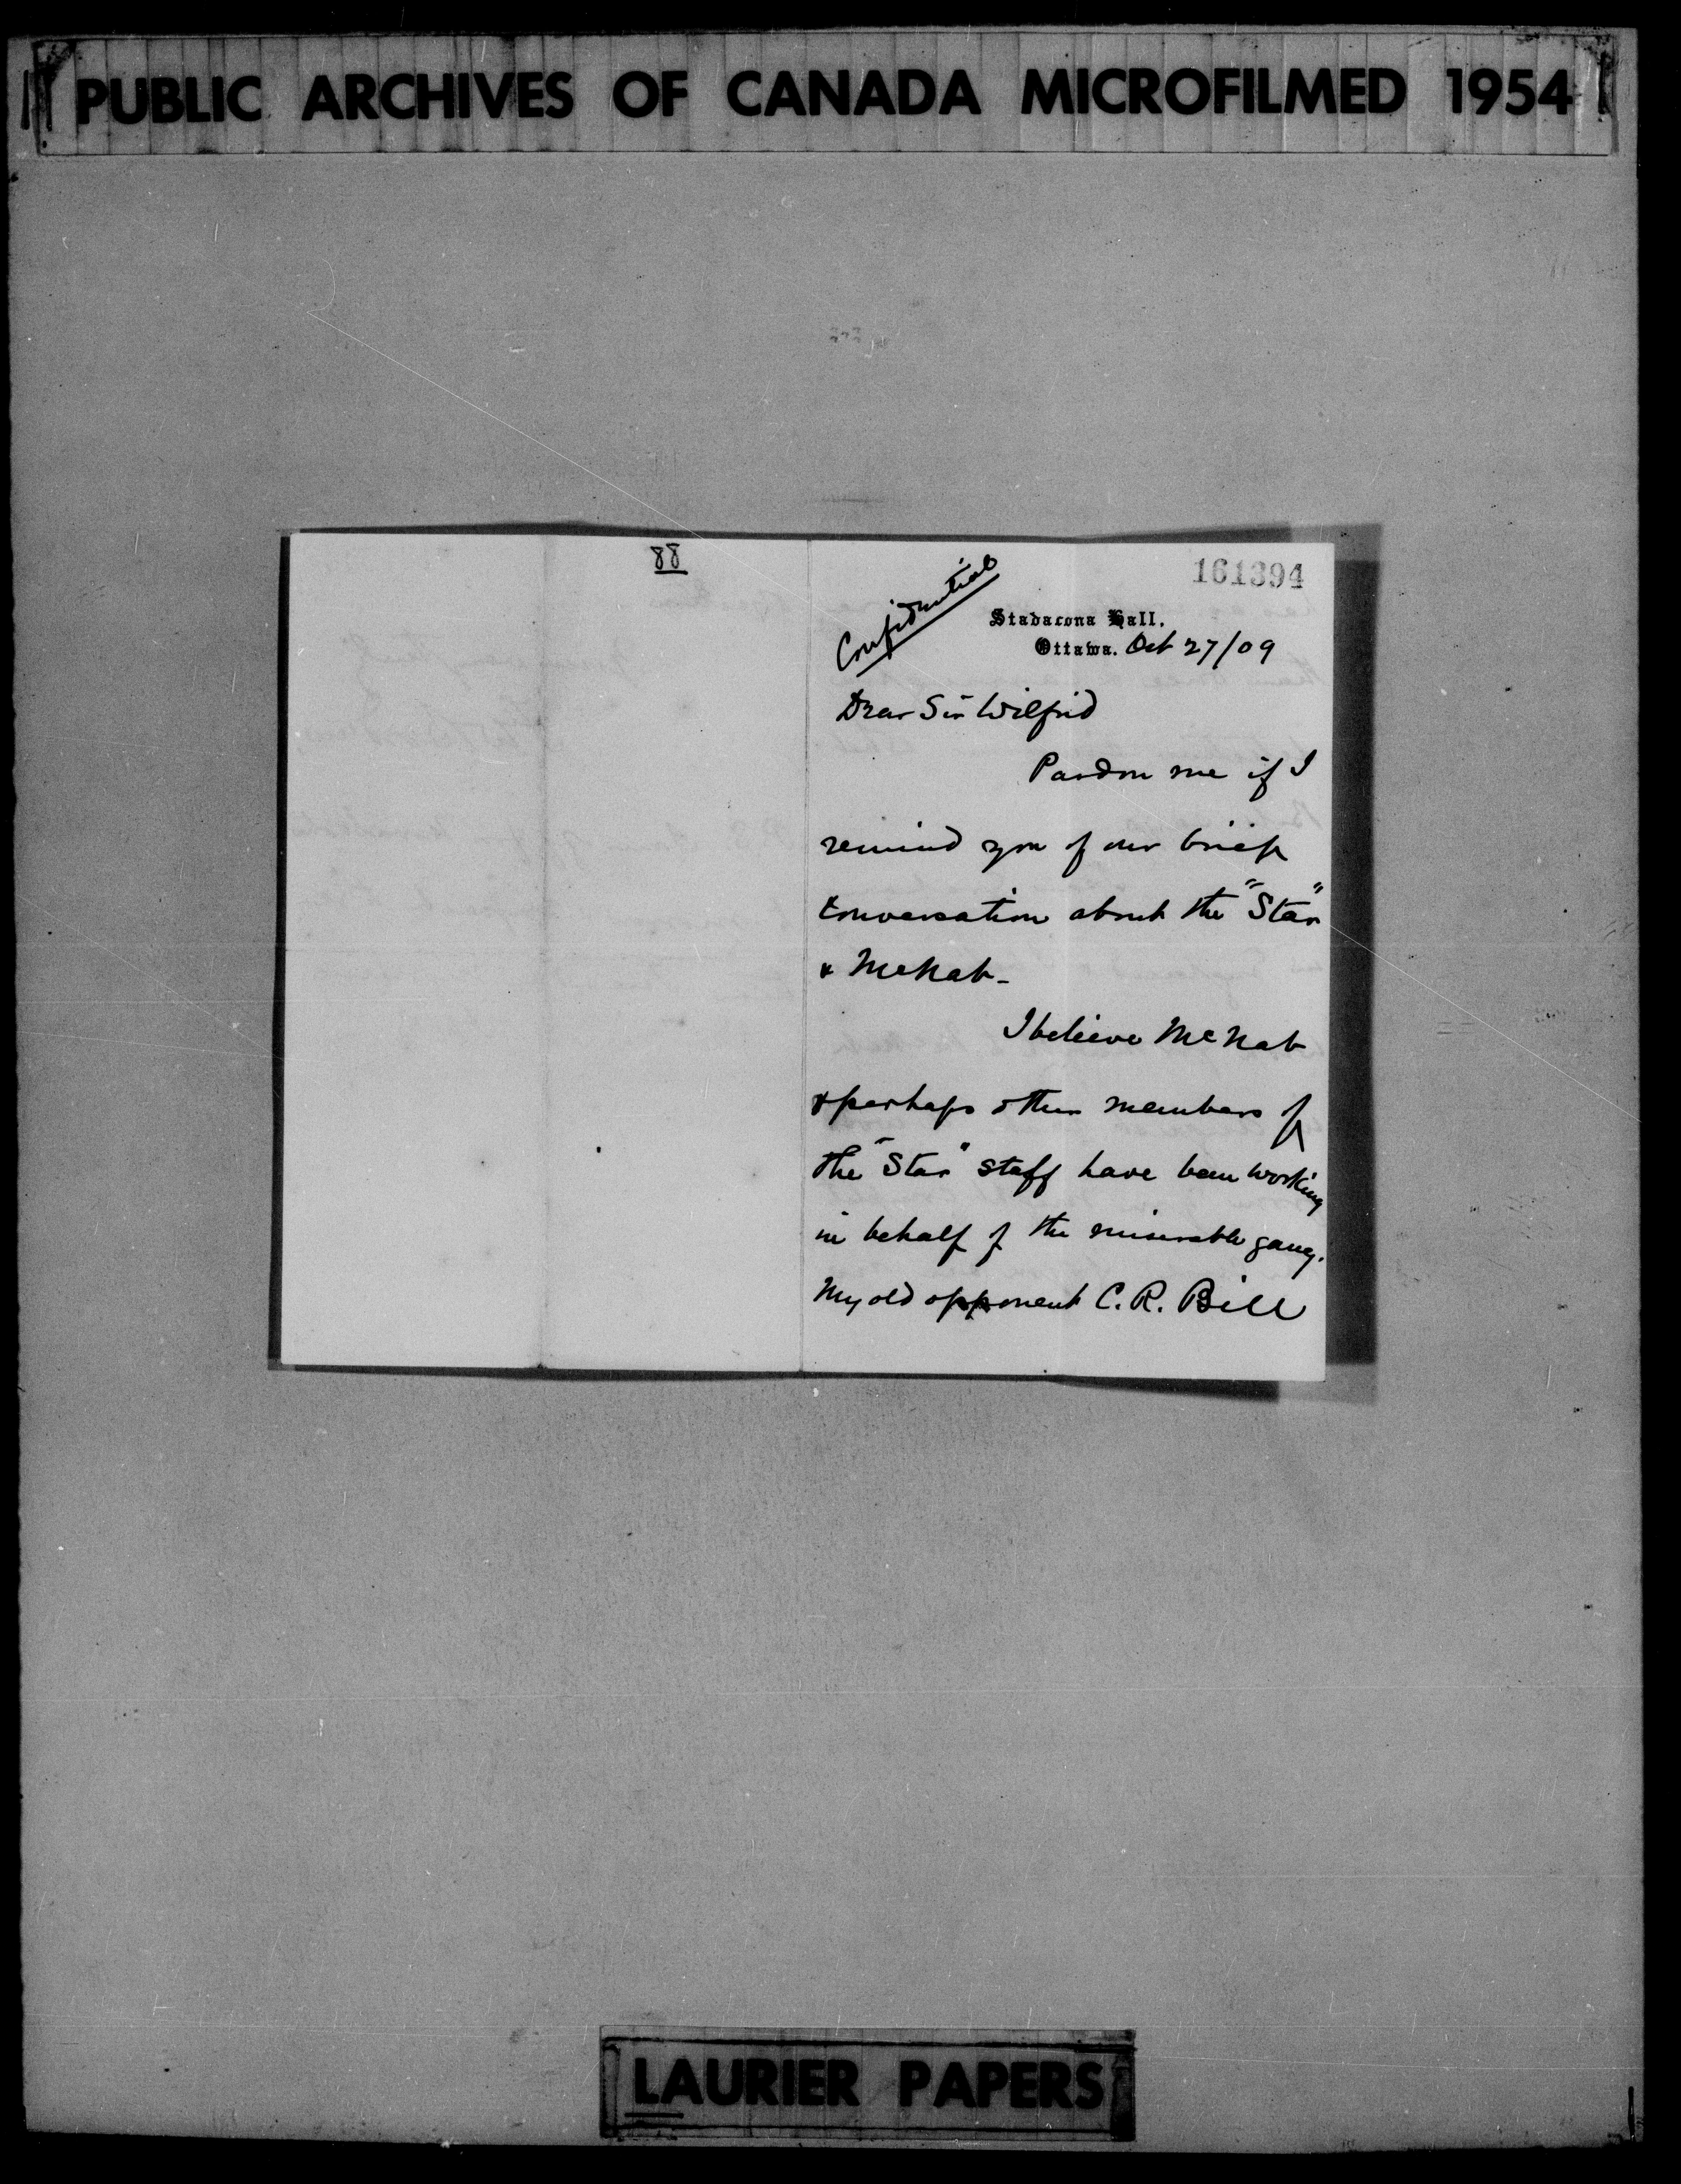 PUBLIC ARCHIVES OF CANADA MICROFILMED 1954
88
161394
Confidential
Stadacona Hall,
Ottawa. Oct 27/09
Dear Sir Wilfrid
Pardon me if I
remind you of our brief
conversation about the "Star"
& McNab-
I believe McNab
& perhaps other members of
the "Star" staff have been working
in behalf of the miserable gang.
My old opponent C. R. Bill
LAURIER PAPERS